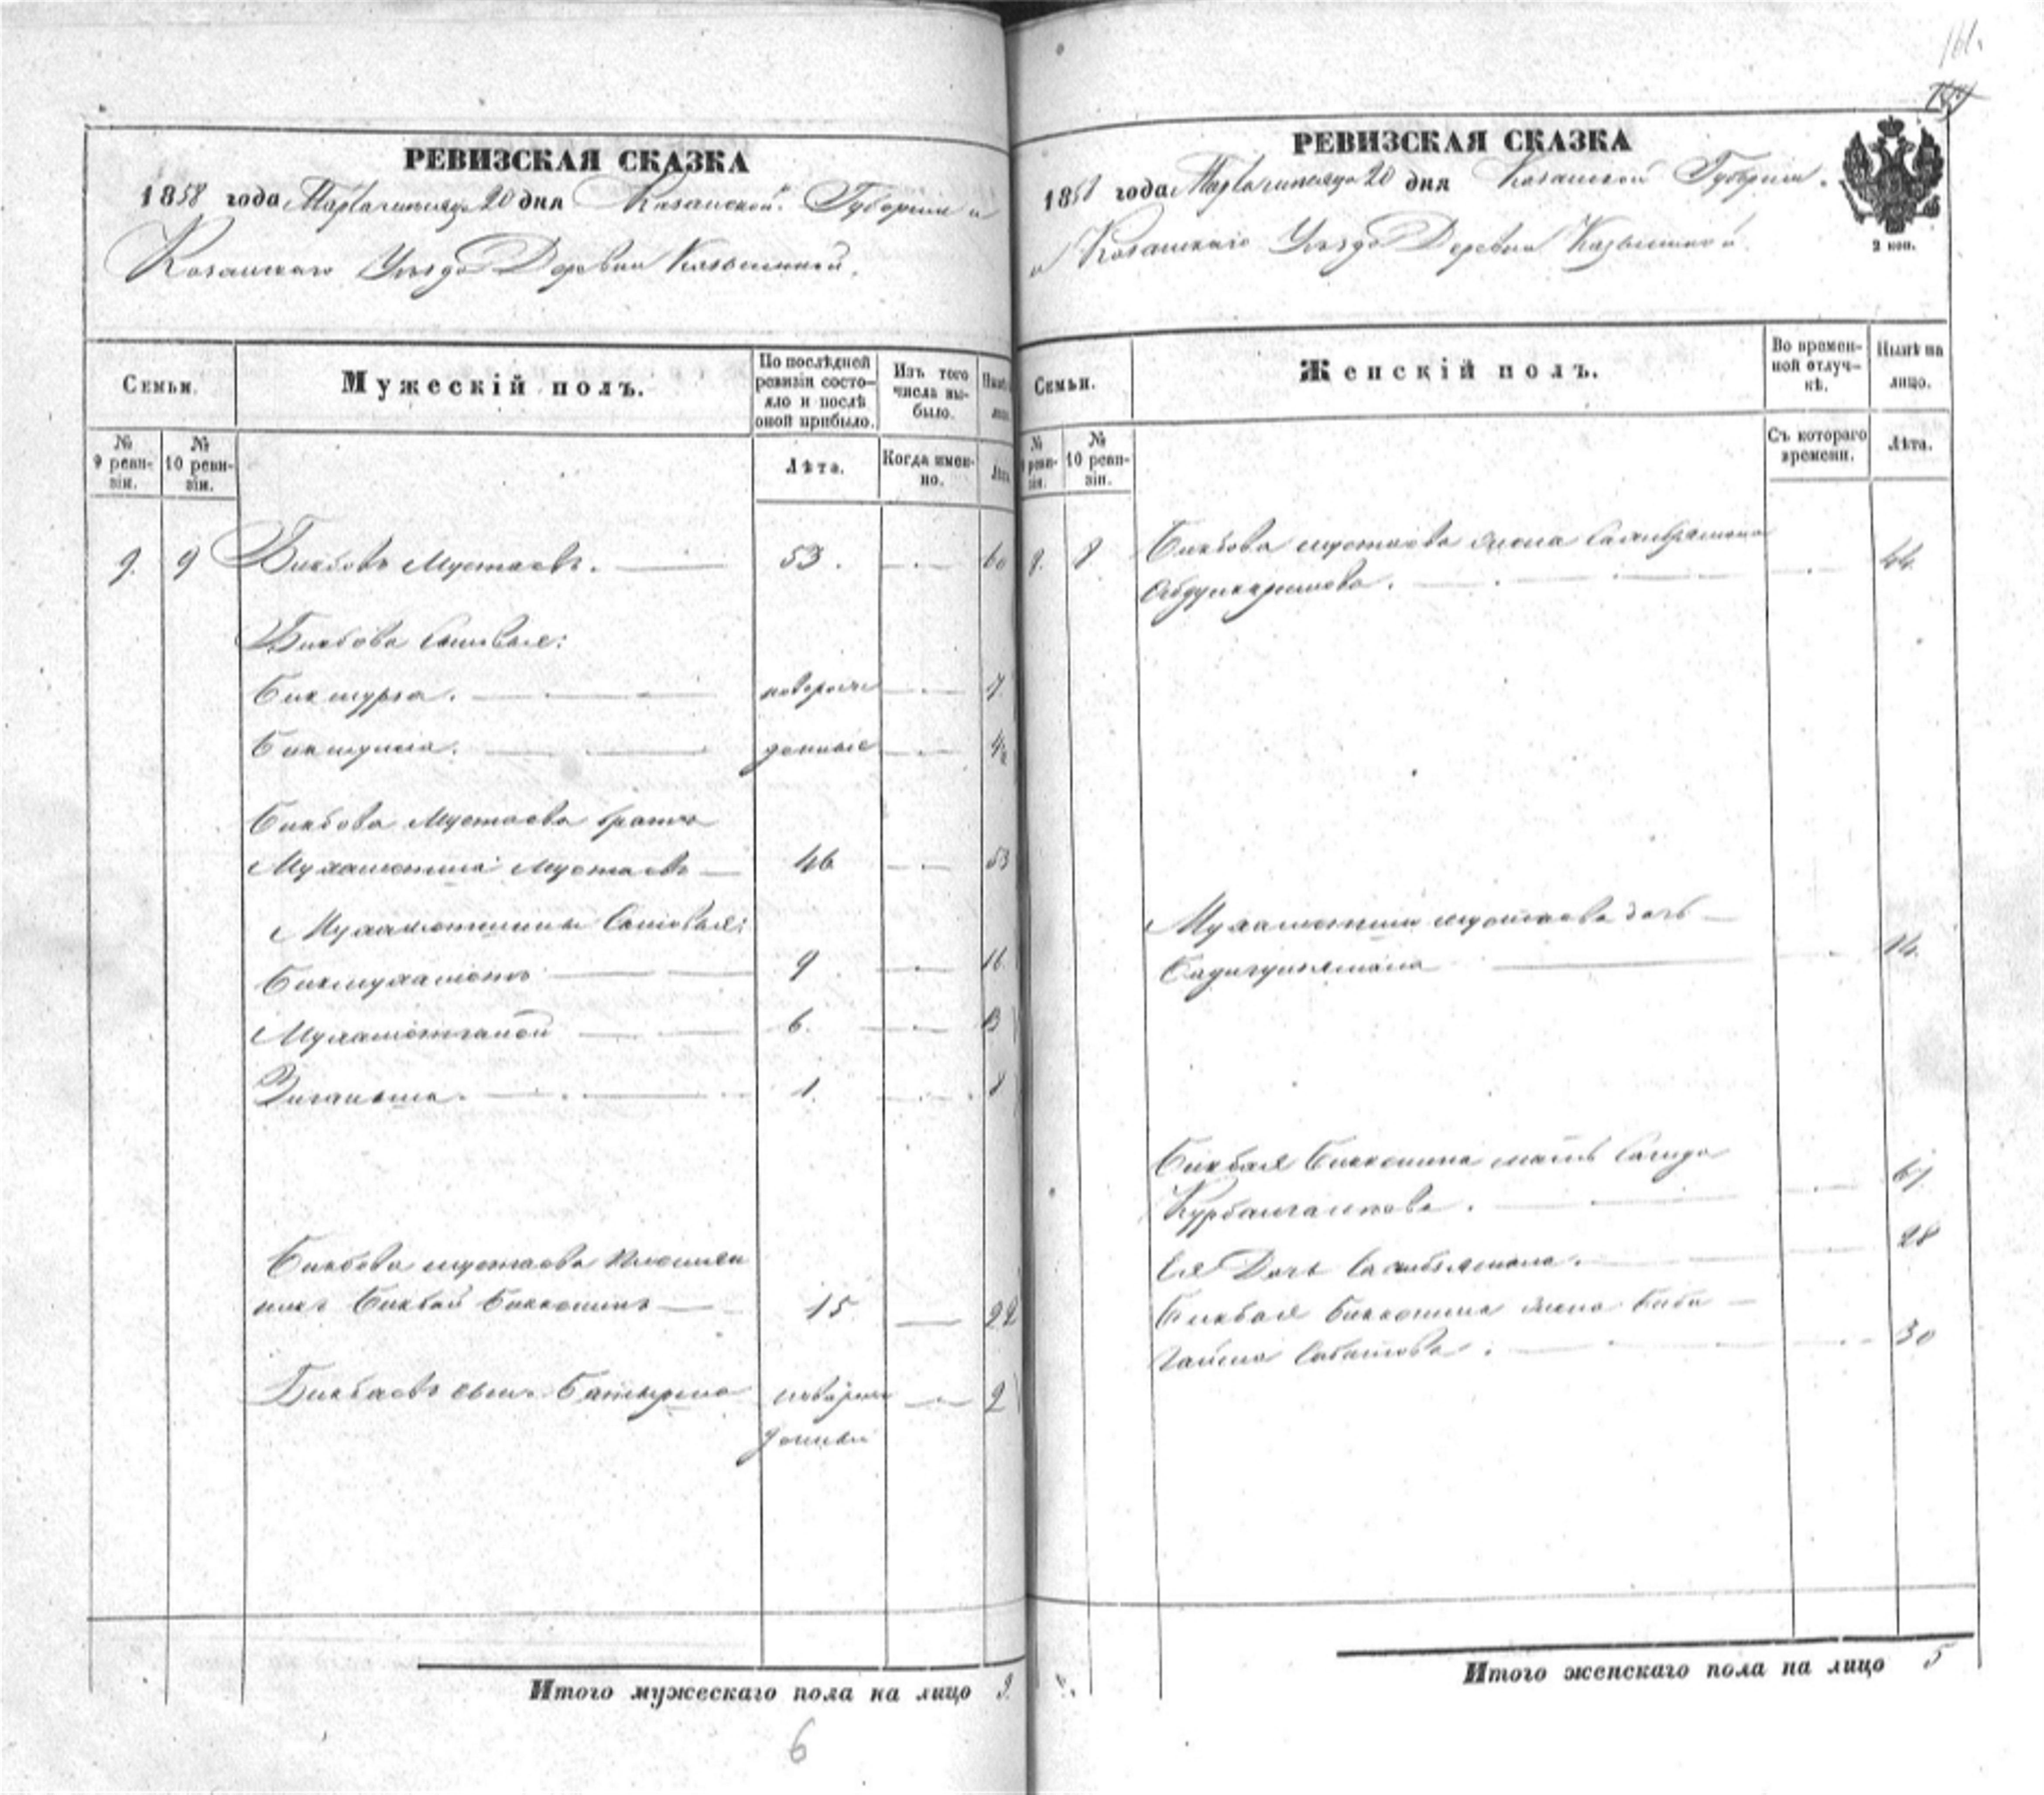 161.
РЕВИЗСКАЯ СКАЗКА
1858 года Марта месяца 20 дня Казанской Губернии
Казанскаго Уезда Деревни Казылиной.
Семьи.
Мужескій полъ.
По послѣдней ревизіи состо-
яло и послѣ
оной прибыло.
Изъ того
числа вы-
было.
Нынѣ
лицо
№
9 реви-
зіи.
№
10 реви-
зіи.
Лѣта.
Когда имен-
но.
Лѣта
9. 9 Бикбовъ Мустаевъ. 53. 60
Бикбова Сыновья:
Биктурга. новорож 7
Биктуша. денные 4
Бикбова Мустаева братъ
Мухаметша Мустаевъ 46 53
Мухаметшины Сыновья:
Бикмухаметъ 9 16
Мухаметгалей 6. 13
Зиганша. 1. 8
Бикбова Мустаева племян
никъ Бикбай Биккенинъ 15 22
Бикбаевъ сынъ Батырша новорож 2
денный
Итого мужескаго пола на лицо 9.
6
РЕВИЗСКАЯ СКАЗКА
1858 года Марта месяца 20 дня Казанской Губернии.
Казанскаго Уезда Деревни Казылиной
2 коп.
Семьи.
Женскій полъ.
Во времен-
ной отлуч-
кѣ.
Нынѣ на
лицо.
№
9 реви-
зіи.
№
10 реви-
зіи.
Съ котораго
времени.
Лѣта.
Бикбова Мустаева жена
Абдулкаримова. 44
Мухаметши Мустаева дочь
14.
Бикбая Биккенина мать Сагида
Курбангалеева. 67
Ея Дочь 28
Бикбая Биккенина жена Биби
30
Итого женскаго пола на лицо 5